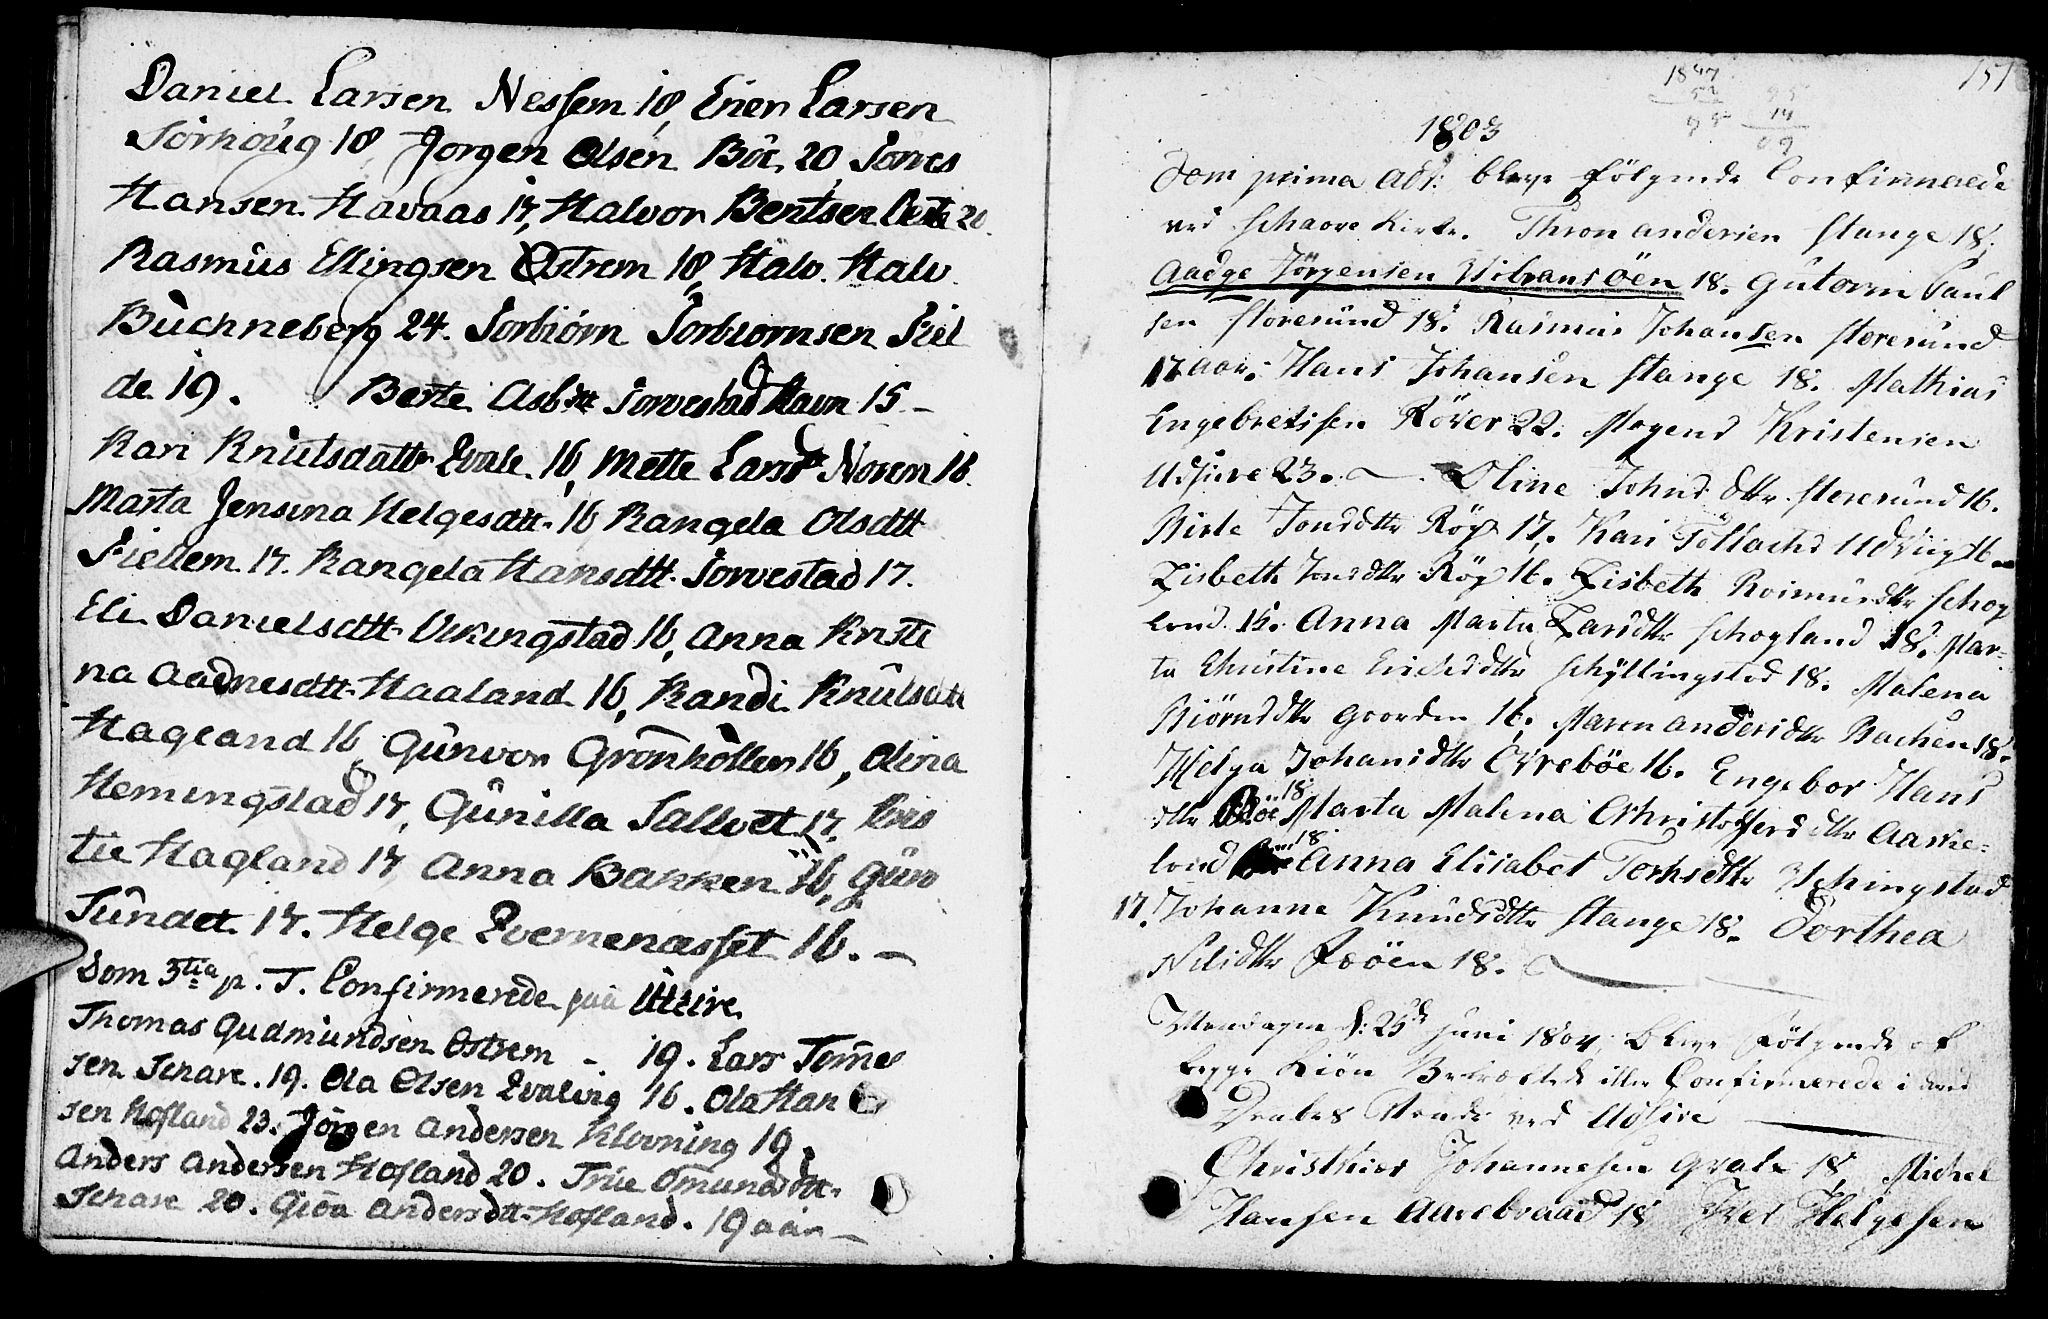 Daniel Larsen Nessem 18, Einer Larsen
Sörhoug 18 Jorgen Olsen Böe 20, Torres
Hansen Havaas 17, Halvor Bentsen 20.
Rasmus Ellingsen Østrem 18, Halv. Halv.
Buchneberg 24. Torbiörn Torbiornsen Fiel
de 19. Berte Asb dtt Torvestad Havn 15 –
Kari Knutsdattr Qvale 16, Mette Larsdtr Norem 18.
Marta Jensina Helgesdtt. 16 Rangela Olsdtt
Fiellem 17. Rangela Hansdtt. Torvestad 17.
Eli Danielsdtt Vikingstad 16, Anna Kristi
na Aadnesdtt Haaland 16, Randi Knutsdtt
Hageland 16, Gunvor Gronhollen 16, Olina
Hemingstad 17, Gunilla Sallvet 17. Kris
tie Hagland 17 Anna Bakken 16, Gunv
Sundet 17. Helge Qvernenæsset 16. –
Dom 3tia p. T. Confirmerede paa Utsire
Thomas Gudmundsen Østrem – 19. Lars Tormes
sen Schare. 19. Ola Olsen Qvalvig 16. Ola Han
sen Hofland 23. Jörgen Andersen Klovning 19.
Anders Andersen Hofland 20. Trüe Omundsdtt.
Schare 20. Giöa Andersdtt Hofland. 19 aar –
151
1847
52
95
95
14
09
1803
Dom prima Adv: bleve fölgende Confirmerede
ved Schaare Kirke. Thron Andersen Stange 18.
Aadge Jörgensen Vibransöen 18. Gutorm Paul
sen Storesund 18. Rasmus Johansen Storesund
17 aar. Hans Johansen Stange 18. Mathias
Engebretssen Röver 22. Mogens Kristensen
Udsire 23. Oline Johns dttr Storesund 16.
Birte Jonsdttr Rög 17. Kari Tollachs Udvüg 16
Lisbeth Jonsdttr Rög 16. Lisbeth Roimunsdttr Schog
lond 15. Anna Marta Larsdttr Schogland 18. Mar-
ta Christine Erichsdttr Schÿllingstad 18. Malena
Biörnsdttr Goorden 16. Maren Andersdttr Bachen 18.
Helga Johansdttr Övreböe 16. Engebor Hans
dttr Böe 18 Marta Malena Christoffersdttr Aaske-
lond 18 Anna Elisabet Torkisdttr Hchingstad
17. Johanne Knudsdttr Stange 18. Dorthea
Nilsdttr Feöen 18.
Mandagen d: 25de Juni 1804, bleve Fölgende af
begge Kiön Confirmerede i deres
ved Udsire
Christhier Johannesen Qvale 18, Michel
Hansen Aarebraad 18 Helgesen